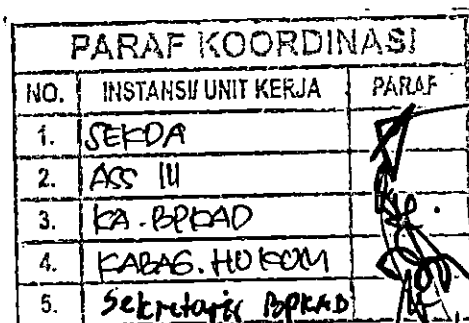 PARAF KOORDINASI
NO. INSTANSI/ UNIT KERJA PARAF
1. SEKDA
2. ASS III
3. KA. BPKAD
4. KABAG. HUKUM
5. Sekretaris BPKAD